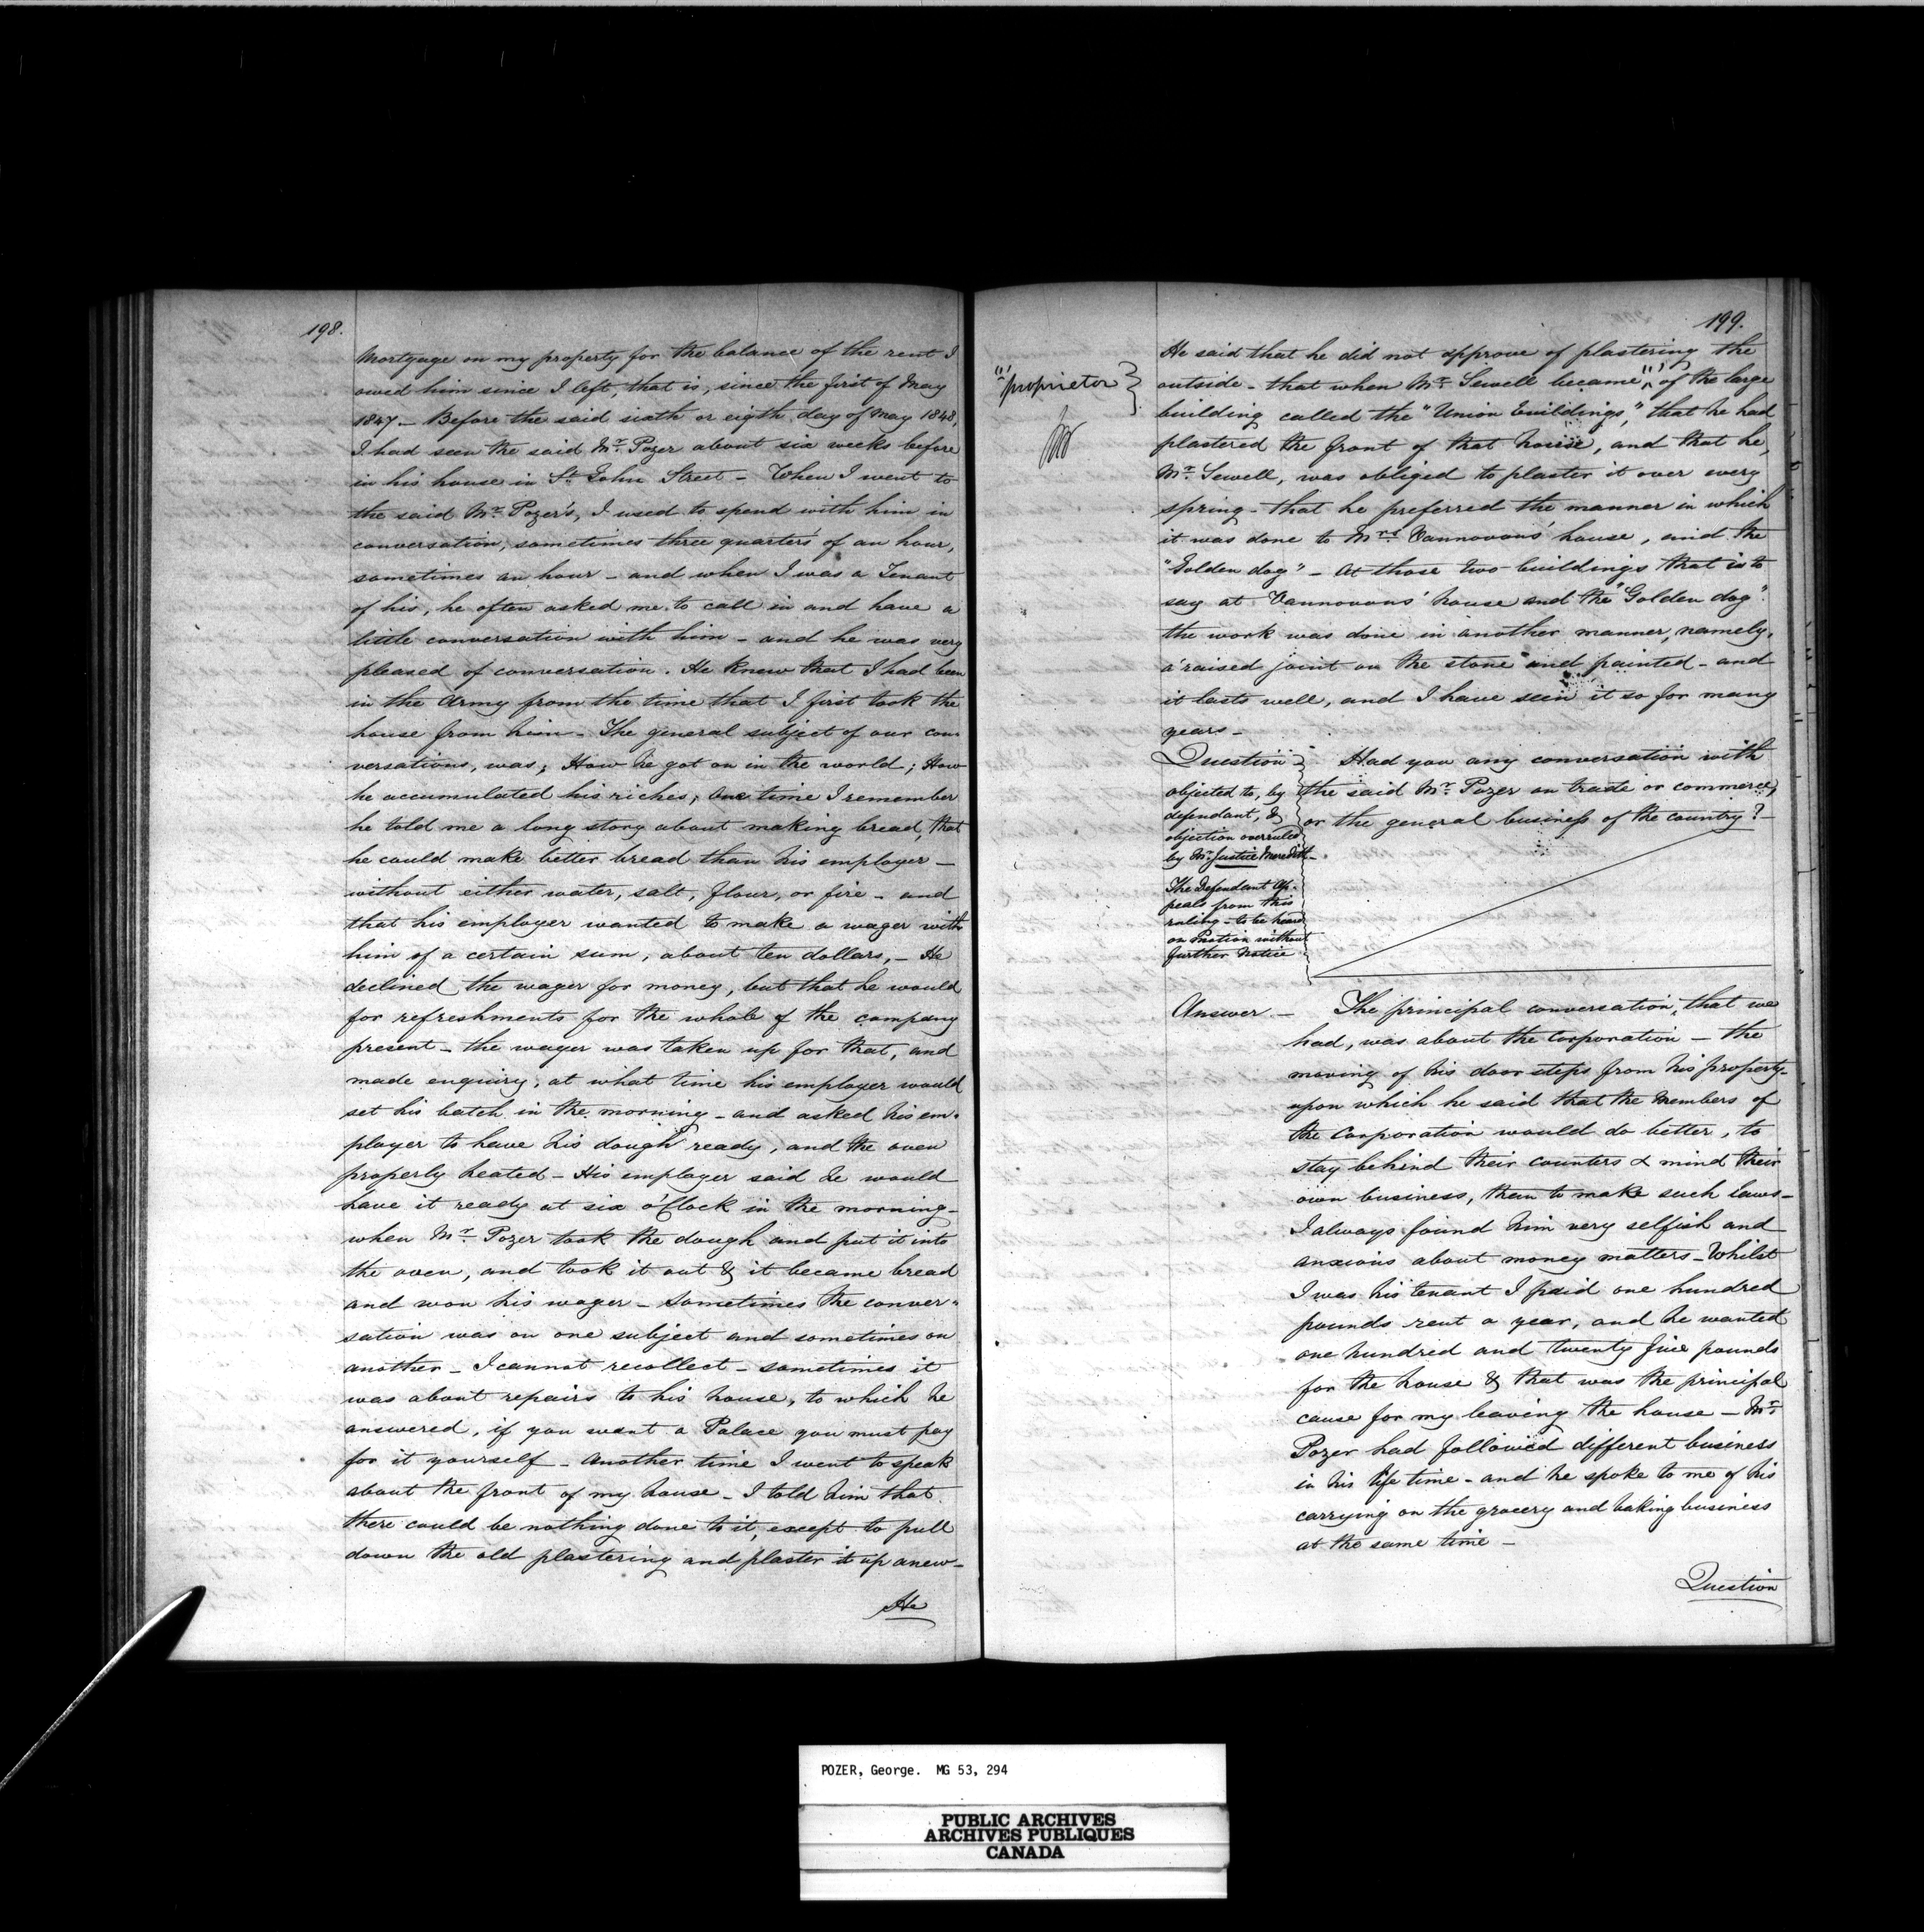 198.
Mortgage on my property for the balance of the rent I
owed him since I left, that is, since the first of May
1847 — Before the said sixth or eigth day of May 1848,
I had seen the said Mr. Pozer about six weeks before
in his house in St. John Street — When I went to
the said Mr. Pozer's, I used to spend with him in
conversation, sometimes three quarters of an hour,
sometimes an hour — and when I was a Tenant
of his, he often asked me to call in and have a
little conversation with him — and he was very
pleased of conversation. He knew that I had been
in the Army from the time that I first took the
house from him — The general subject of our con
versations, was; How he got on in the world; How
he accumulated his riches; One time I remember
he told me a long story about making bread, that
he could make better bread than his employer —
without either water, salt, flour, or fire — and
that his employer wanted to make a wager with
him of a certain sum, about ten dollars, — He
declined the wager for money, but that he would
for refreshments for the whole of the company
present — the wager was taken up for that, and
made enquiry, at what time his employer would
set his batch in the morning — and asked his em-
ployer to have his dough ready, and the oven
properly heated — His employer said he would
have it ready at six o'Clock in the morning —
when Mr. Pozer took the dough and put it into
the oven, and took it out & it became bread
and won his wager — Sometimes the conver-
sation was on one subject and sometimes on
another — I cannot recollect — sometimes it
was about repairs to his house, to which he
answered, if you want a Palace you must pay
for it yourself — Another time I went to speak
about the front of my house — I told him that
there could be nothing done to it, except to pull
down the old plastering and plaster it up anew —
He
199.
"proprietor"
He said that he did not approve of plastering the
outside — that when Mr. Sewell became of the large
building called the "Union buildings," that he had
plastered the front of that house, and that he,
Mr. Sewell, was obliged to plaster it over every
spring — that he preferred the manner in which
it was done to Mrs. Vannovous' house, and the
"Golden dog" — At those two buildings that is to
say at Vannovous' house and the "Golden dog".
the work was done in another manner, namely,
a raised joint on the stone and painted — and
it lasts well, and I have seen it so for many
years —
Question
objected to, by
defendant, &
objection overruled
by Mr. Justice Meredith —
The Defendant Ap-
peals from this
ruling — to be heard
on Motion without
further Notice
Had you any conversation with
the said Mr. Pozer on trade or commerce,
or the general business of the country? —
Answer. — The principal conversation, that we
had, was about the Corporation — the
moving of his door steps from his property —
upon which he said that the Members of
the Corporation would do better, to
stay behind their counters & mind their
own business, than to make such Laws —
I always found him very selfish and
anxious about money matters — Whilst
I was his tenant I paid one hundred
pounds rent a year, and he wanted
one hundred and twenty five pounds
for the house & that was the principal
cause for my leaving the house — Mr.
Pozer had followed different business
in his life time — and he spoke to me of his
carrying on the grocery and baking business
at the same time —
Question
POZER, George. MG 53, 294
PUBLIC ARCHIVES
ARCHIVES PUBLIQUES
CANADA